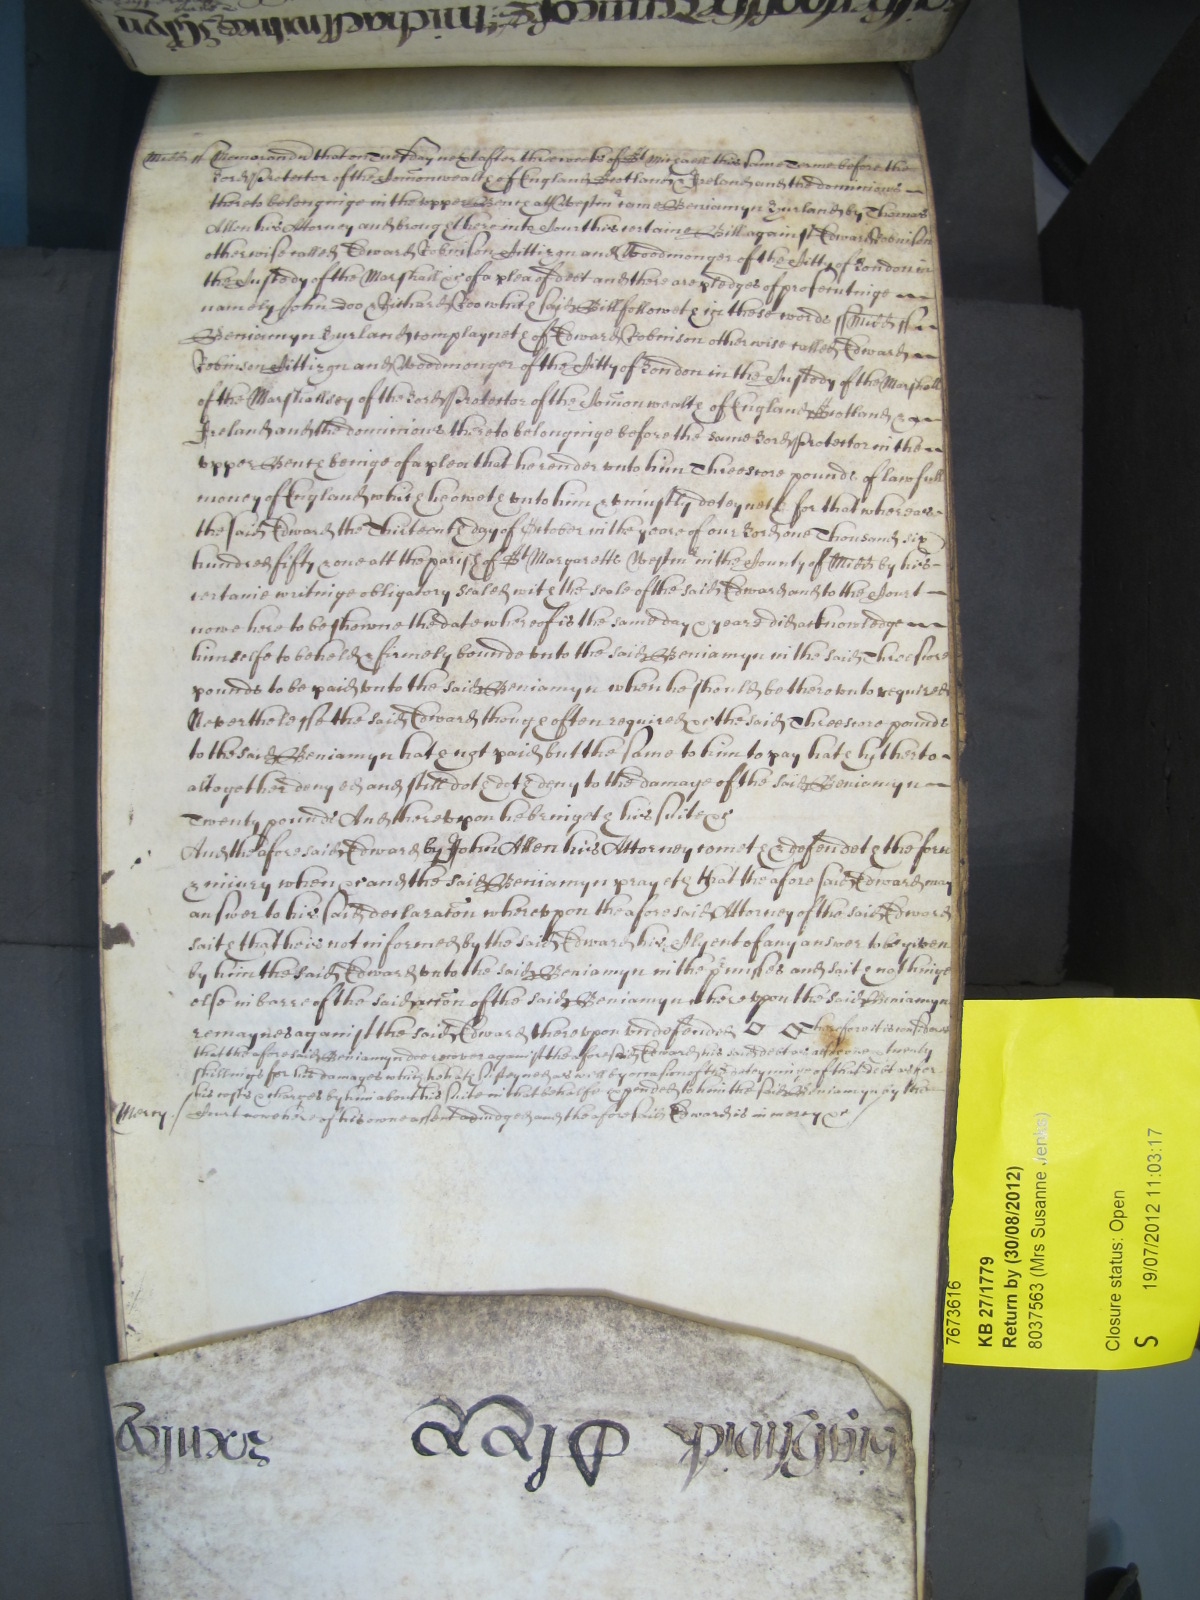 Midd ss Memorand that on Tuesday next after three weekes of St Michaell this same Terme before the
Lord Protector of the Comonwealth of England Scotland & Ireland and the dominions
thereto belonginge in the upper Bench att Westmr came Beniamyn Burland by Thomas
Allen his Attorney and brought here into Court his certaine Bill against Edward Robinson
otherwise called Edward Robinson Cittizen and Woodmonger of the Citty of London in
the Custody of the Marshall &c of a plea of debt and there are pledges of prosecutinge
namely John Doo & Richard Roo which said Bill followeth in these words ss Midd ss
Beniamyn Burland complayneth of Edward Robinson otherwise called Edward
Robinson Cittizen and Woodmonger of the Citty of London in the Custody of the Marshall
of the Marshallsey of the Lord Protector of the Comonwealth of England Scotland &
Ireland and the dominions thereto belonginge before the same Lord Protector in the
upper Bench beinge of a plea that he render unto him Threescore pounds of lawfull
money of England which he oweth unto him & uniustly deteyneth for that whereas
the said Edward the Thirteenth day of October in the yeare of our Lord one Thousand six
hundred fifty & one att the parish of St Margaretts Westmr in the County of Midd by his
certaine writinge obligatory sealed with the seale of the said Edward and to the Court
nowe here to be shewne the date whereof is the same day & yeare did acknowledge
himselfe to be held & firmely bounde unto the said Beniamyn in the said Threescore
pounds to be paid unto the said Beniamyn when he should be thereunto required
Neverthelesse the said Edward though often required &c the said Threescore pounds
to the said Beniamyn hath not paid but the same to him to pay hath hitherto
altogether denyed and still doth deny to the damage of the said Beniamyn
Twenty pounds And thereupon he bringeth his suite &c
And the aforesaid Edward by John Allen his Attorney cometh & defendeth the force
& iniury when &c and the said Beniamyn prayeth that the aforesaid Edward may
answer to his said declaracon whereupon the aforesaid Attorney of the said Edward
saith that he is not informed by the said Edward his Clyent of any answer to be given
by him the said Edward unto the said Beniamyn in the prmisses and saith nothinge
else in barre of the said accon of the said Beniamyn whereupon the said Beniamyn
remaynes against the said Edward thereupon undefended Therefore it is considered
that the aforesaid Beniamyn doe recover against the aforesaid Edward his said debt and twenty
shillings for his damages which he hath susteyned as well by occasion of the deteyninge of that debt as for
his costs & charges by him about his suite in that behalfe expended to him the said Beniamyn by the
Mercy Court nowe here of his owne assent adiudged and the aforesaid Edward is in mercy &c
7673616
KB 27/1779
Return by (30/08/2012)
8037563 (Mrs Susanne Jenks)
Closure status: Open
S 19/07/2012 11:03:17